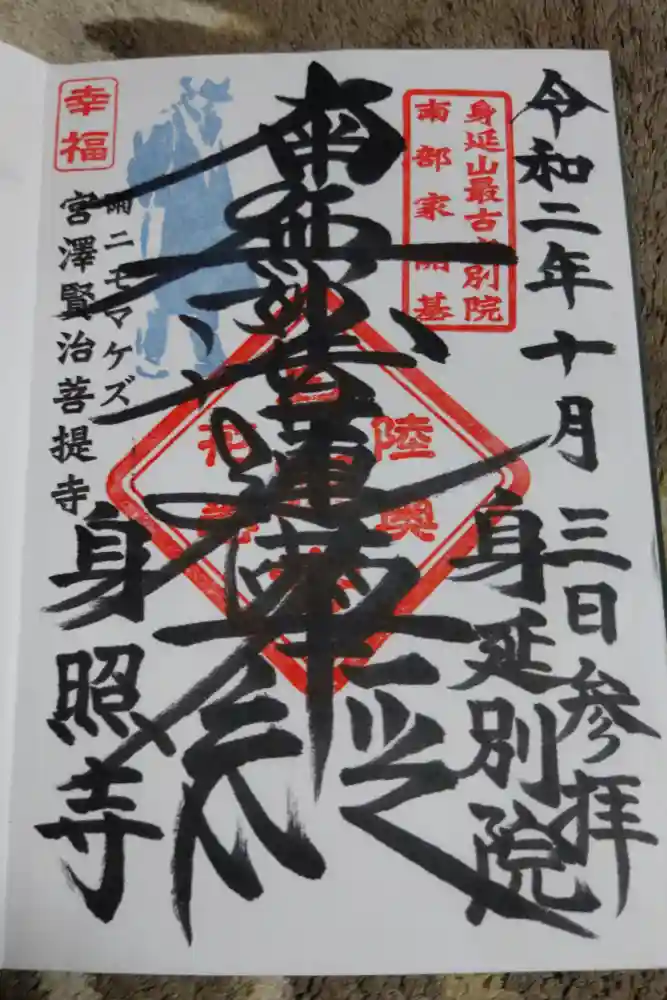 令和二年十月三日参拝
身延別院
身延山最古別院
南部家開基
南無妙法蓮華経
陸奥
雨ニモマケズ
幸福
宮澤賢治菩提寺
身照寺